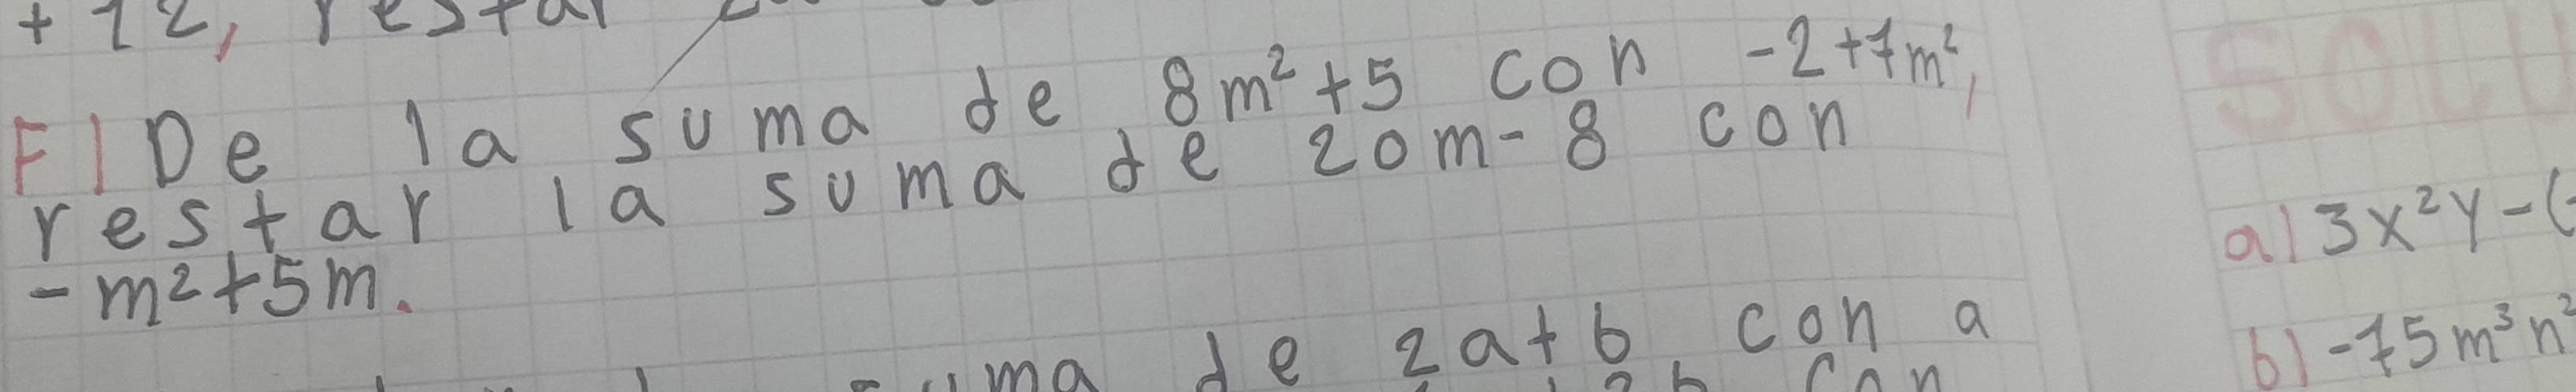 +12, restar
F| De la suma de 8m²+5 con -2+7m²,
restar la suma de 20m-8 con
-m²+5m.
suma de 2a+b con a
con
SOLU
a| 3x²y-(
b) -75m³n²